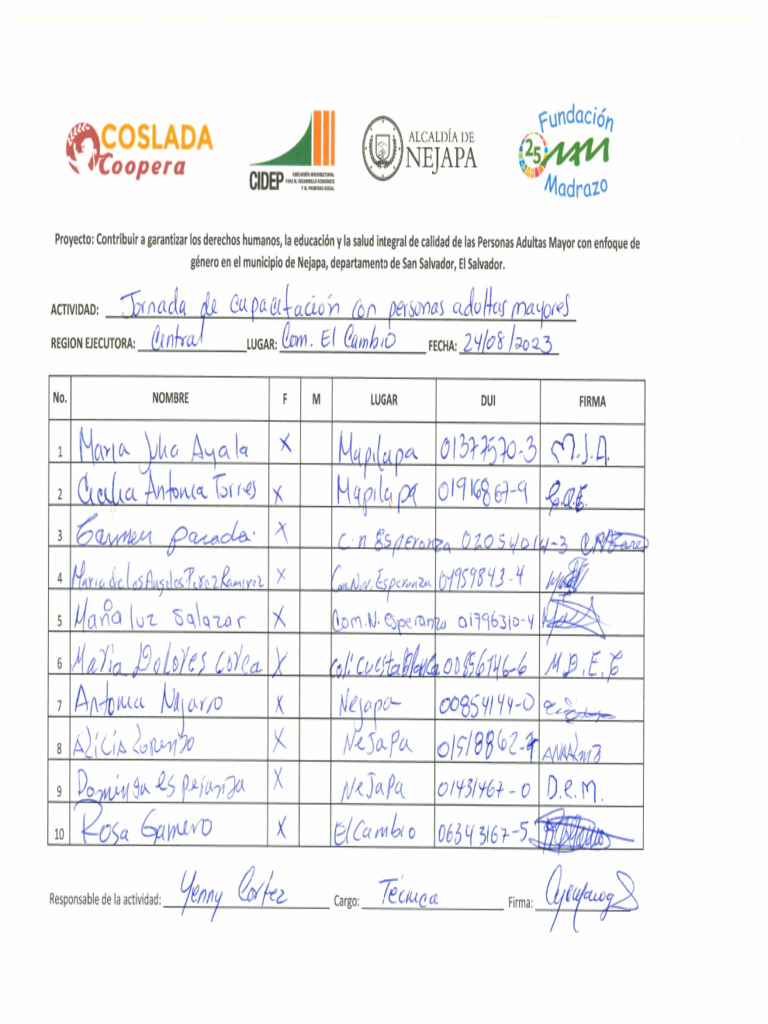 COSLADA
Coopera
CIDEP
ASOCIACIÓN INTERSECTORIAL
PARA EL DESARROLLO ECONÓMICO
Y EL PROGRESO SOCIAL
ALCALDÍA DE
NEJAPA
Fundación
25
Madrazo
Proyecto: Contribuir a garantizar los derechos humanos, la educación y la salud integral de calidad de las Personas Adultas Mayor con enfoque de
género en el municipio de Nejapa, departamento de San Salvador, El Salvador.
ACTIVIDAD: Jornada de capacitación con personas adultas mayores
REGION EJECUTORA: Central LUGAR: Com. El Cambio FECHA: 24/08/2023
No. NOMBRE F M LUGAR DUI FIRMA
1 Maria Julia Ayala X Mapilapa 01377570-3 M.J.A.
2 Cecilia Antonia Torres X Mapilapa 01916867-9
3 Carmen parada. X C.n Esperanza 02054014-3
4 Maria de los Angeles Perez Ramirez X Com Nov. Esperanza 01959843-4
5 Maria luz Salazar X Com. N. Esperanza 01796310-4
6 Maria Dolores Corea X coli cuesta Blanca 00856746-6 M.D.E.C
7 Antonia Najarro X Nejapa 00854144-0
8 Alicia Lorenzo X NeJaPa 01518862-7
9 Dominga esperanza X NeJaPa 01431467-0 D.E.M.
10 Rosa Gamero X El Cambio 06343167-5
Responsable de la actividad: Yenny Cortez Cargo: Técnica Firma: